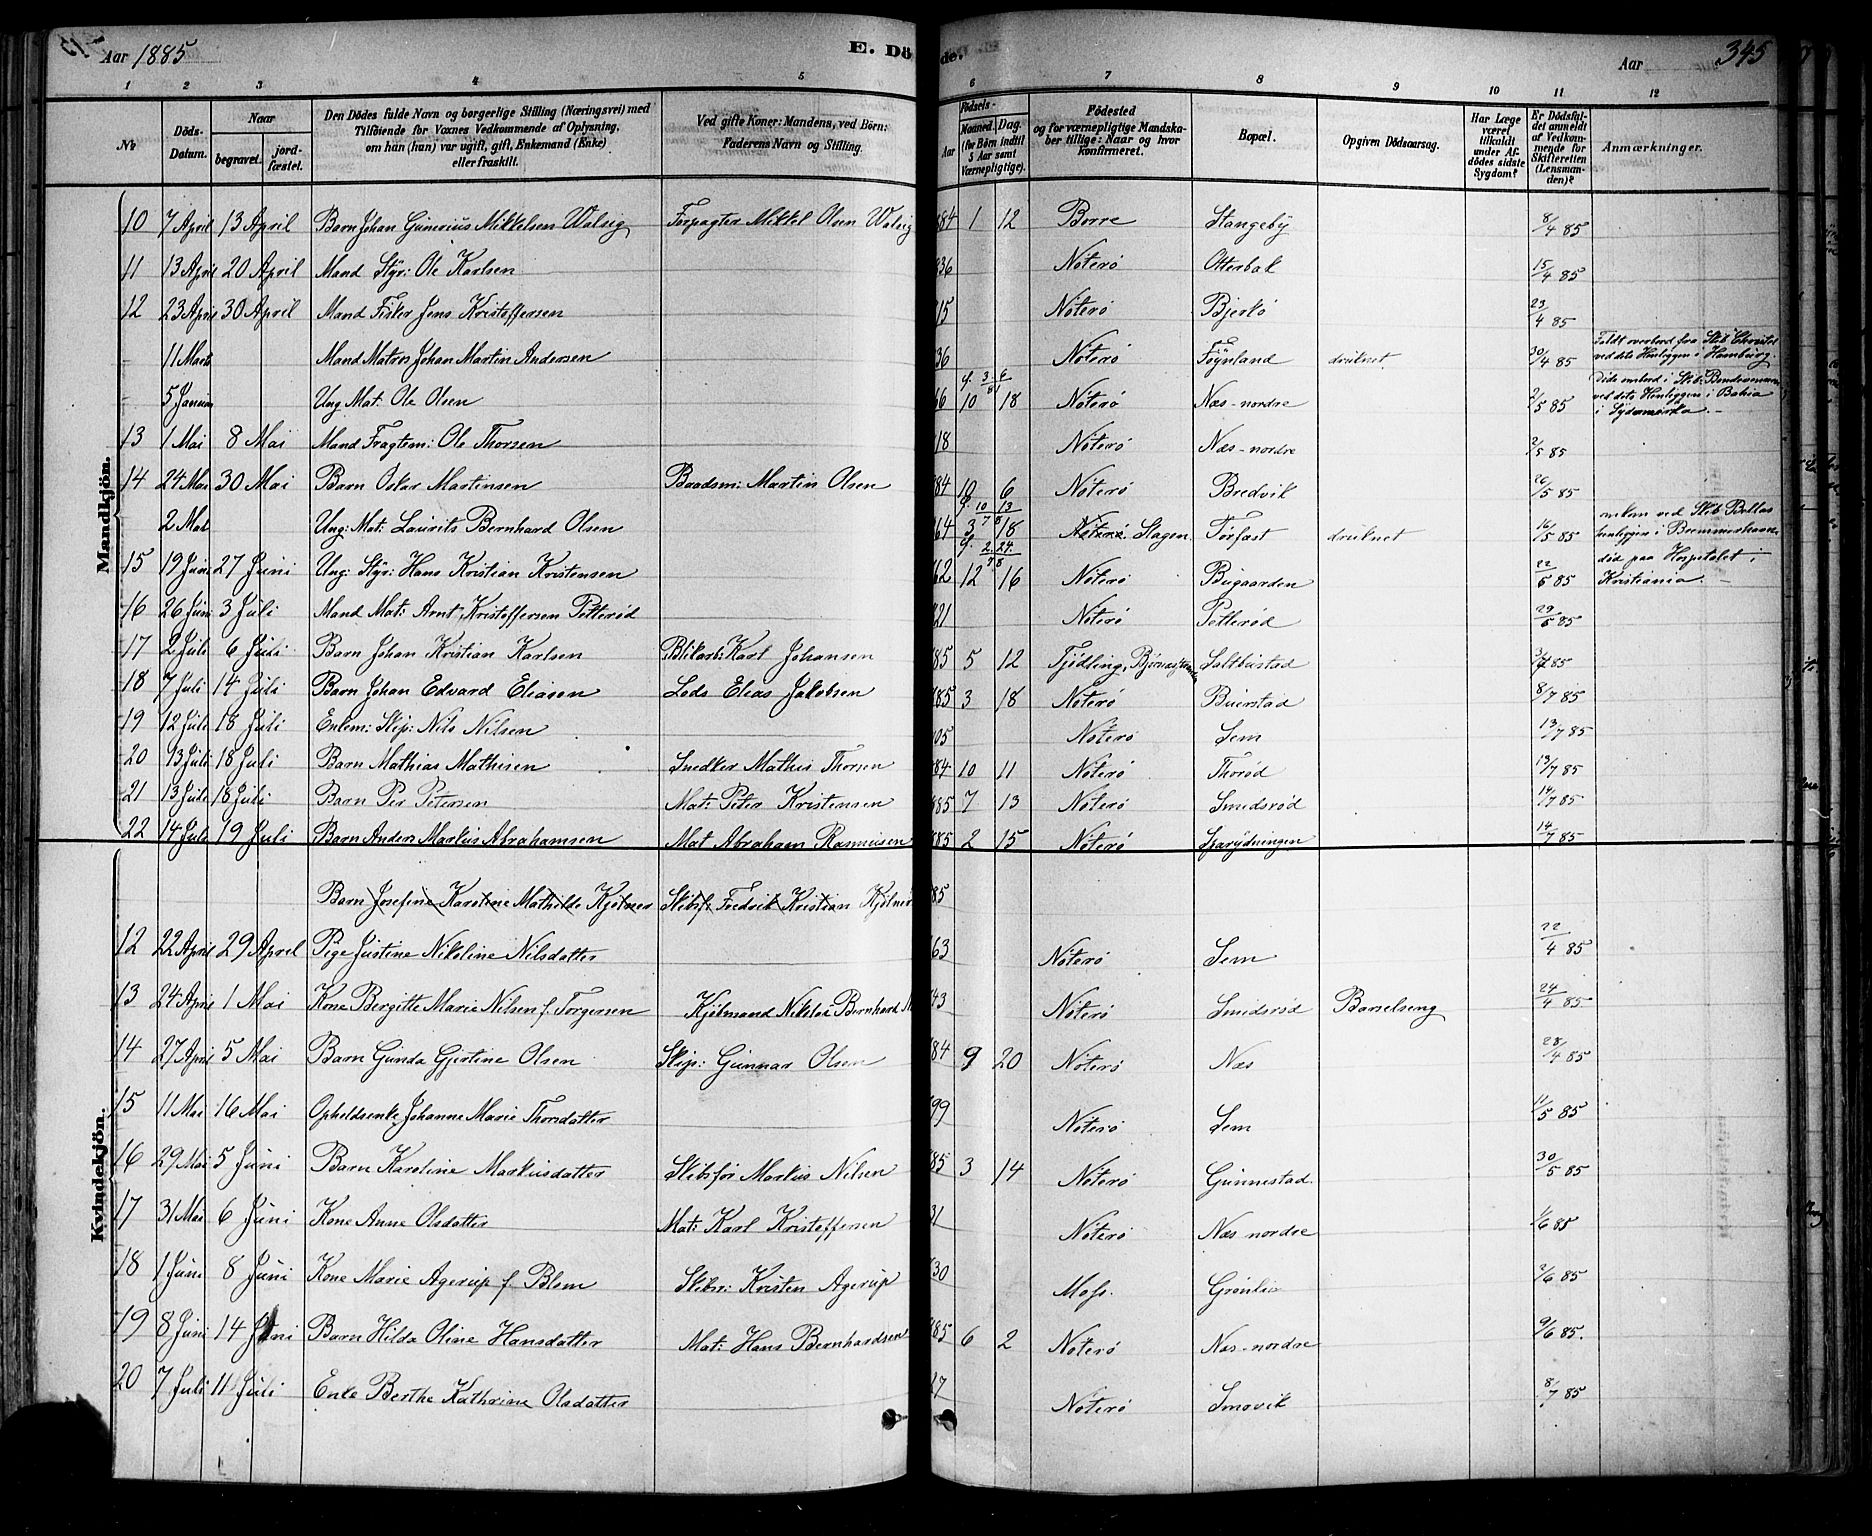 Aar 1885 E. Dö de. Aar 345
1 2 3 4 5 6 7 8 9 10 11 12
№ Döds-Datum. Naar begravet. jord-fæstet. Den Dödes fulde Navn og borgerlige Stilling (Næringsvei) med Tilföiende for Voxnes Vedkommende af Oplysning, om han (hun) var ugift, gift, Enkemand (Enke) eller fraskilt. Ved gifte Koner: Mandens, ved Börn: Faderens Navn og Stilling. Födsels- Aar Maaned. Dag. (for Börn indtil 5 Aar samt Værnepligtige). Födested og for værnepligtige Mandska-ber tillige: Naar og hvor konfirmeret. Bopæl. Opgiven Dödsaarsag. Har Læge været tilkaldt under Af-dödes sidste Sygdom? Er Dödsfal-det anmeldt af Vedkom-mende for Skifteretten (Lensman-den)? Anmærkninger.
Mandkjön.
10 7 April 13 April Barn Johan Gunerius Mikkelsen Valsig Forpagter Mikkel Olsen Valsig 84 1 12 Borre Stangeby 8/4 85
11 13 April 20 April Mand Styr: Ole Karlsen 36 Nöterö Otterbæk 15/4 85
12 23 April 30 April Mand Fisker Jens Kristoffersen 15 Nöterö Bjerkö 23/4 85
- 11 Marts Mand Matros Johan Martin Andersen 36 Nöterö Föynland druknet 30/4 85 Faldt overbord fra Skib ved dets Henliggen i Hamburg.
- 5 Januar Ung Mat: Ole Olsen 66 10 18 Nöterö Næs-nordre 2/5 85 Döde ombord i Skib ved dets Henliggen i Bahia i Sydamerika
13 1 Mai 8 Mai Mand Fragtem: Ole Thorsen 18 Nöterö Næs-nordre 2/5 85
14 24 Mai 30 Mai Barn Oskar Martinsen Baadsm: Martin Olsen 84 10 6 Nöterö Bredvik 26/5 85
2 Mai Ung: Mat: Laurits Bernhard Olsen 64 3 18 Nöterö Slagen Torfast druknet 16/5 85 omkom ved Skib Bellas henliggen i Bremmerhaven
15 19 Juni 27 Juni Ung: Styr: Hans Kristian Kristensen 62 12 16 Nöterö Bugaarden 22/6 85 död paa Hospitalet i Kristiania
16 26 Juni 3 Juli Mand Mat: Arnt Kristoffersen Petteröd 21 Nöterö Petteröd 29/6 85
17 2 Juli 6 Juli Barn Johan Kristian Karlsen Blikarb: Karl Johansen 85 5 12 Tjödling, Saltbustad 3/7 85
18 7 Juli 14 Juli Barn Johan Edvard Eliasen Lods Elias Jakobsen 85 3 18 Nöterö Buerstad 8/7 85
19 12 Juli 18 Juli Enkem: Skip: Nils Nilsen 05 Nöterö Sem 13/7 85
20 13 Juli 18 Juli Barn Mathias Mathisen Snedker Mathis Thorsen 84 10 11 Nöterö Thoröd 13/7 85
21 13 Juli 18 Juli Barn Per Petersen Mat: Peter Kristensen 85 7 13 Nöterö Smidsröd 14/7 85
22 14 Juli 19 Juli Barn Anders Markus Abrahamsen Mat Abraham Rasmusen 85 2 15 Nöterö 14/7 85
Kvindekjön.
Barn Josefine Karoline Mathilde Kjölner Skibsf: Fredrik Kristian Kjölner 85
12 22 April 29 April Pige Justine Nikoline Nilsdatter 63 Nöterö Sem 22/4 85
13 24 April 1 Mai Kone Bergitte Marie Nilsen f. Torgersen Kjöbmand Nikolai Bernhard 43 Nöterö Smidsröd Barselseng 24/4 85
14 27 April 5 Mai Barn Gunda Gjertine Olsen Skip: Gunnar Olsen 84 9 20 Nöterö Næs 28/4 85
15 11 Mai 16 Mai Opholdsenke Johanne Marie Thorsdatter 99 Nöterö Sem 11/5 85
16 29 Mai 5 Juni Barn Karoline Markusdatter Skibsför Markus Nilsen 85 3 14 Nöterö Gunnestad. 30/5 85
17 31 Mai 6 Juni Kone Anne Olsdatter Mat: Karl Kristoffersen 31 Nöterö Næs nordre 1/6 85
18 1 Juni 8 Juni Kone Marie Agerup f. Blom Skibsr: Kristen Agerup 30 Moss. Grönlia 2/6 85
19 8 Juni 14 Juni Barn Hilda Oline Hansdatter Mat: Hans Bernhardsen 85 6 2 Nöterö Næs-nordre 9/6 85.
20 7 Juli 11 Juli Enke Berthe Kathrine Olsdatter 17 Nöterö Smövik 8/7 85